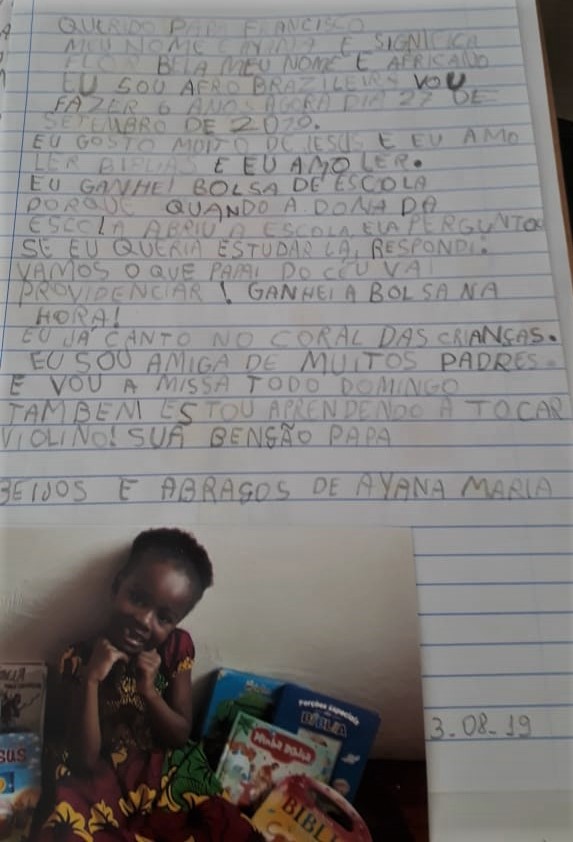 QUERIDO PAPA FRANCISCO
MEU NOME É AYANA E SIGNIFICA
FLOR BELA MEU NOME E AFRICANO
EU SOU AFRO BRAZILEIRA VOU
FAZER 6 ANOS AGORA DIA 27 DE
SETEMBRO DE 2019.
EU GOSTO MUITO DE JESUS E EU AMO
LER BIBLIAS E EU AMO LER.
EU GANHEI BOLSA DE ESCOLA
PORQUE QUANDO A DONA DA
ESCOLA ABRIU A ESCOLA, ELA PERGUNTOU
SE EU QUERIA ESTUDAR LÁ, RESPONDI:
VAMOS O QUE PAPAI DO CÉU VAI
PROVIDENCIAR! GANHEI A BOLSA NA
HORA!
EU JÁ CANTO NO CORAL DAS CRIANÇAS.
EU SOU AMIGA DE MUITOS PADRES.
E VOU A MISSA TODO DOMINGO
TAMBEM ESTOU APRENDENDO A TOCAR
VIOLINO! SUA BENSÃO PAPA
BEIJOS E ABRAÇOS DE AYANA MARIA
Porções especiais
da
BÍBLIA
Minha Bíblia
SUS
BIBLI
3-08-19